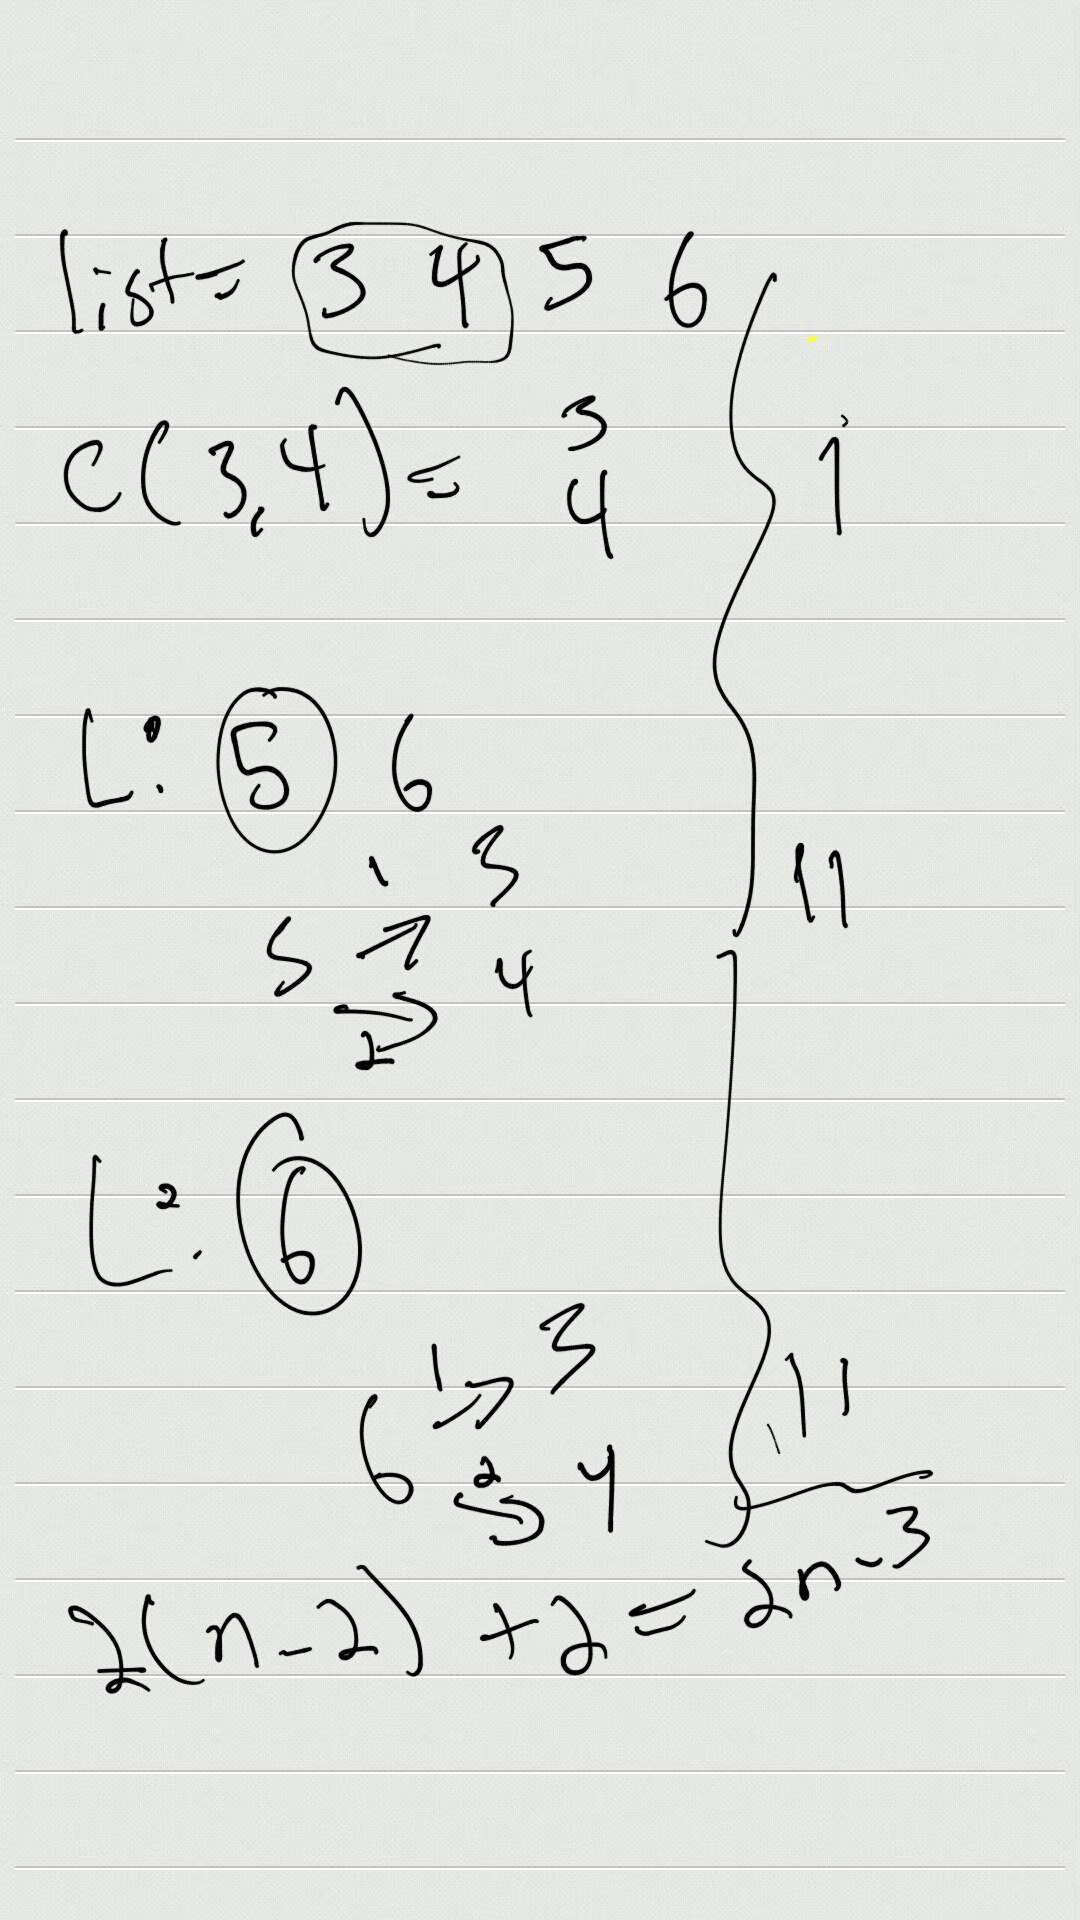 list= 3 4 5 6
C(3,4)= 3
4
1
L: 5 6
1 3
5 4
2
11
L2. 6
1 3
6 2 4
11
2(n-2) +2= 2n-3